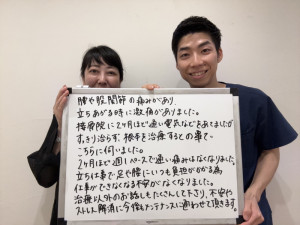 膝や股関節の痛みがあり
立ちあがる時に激痛がありました。
接骨院に2ヶ月ほど通い電気などをあてましたが
すっきり治らず、根本を治療するとの事で
こちらに伺いました。
2ヶ月ほど週1ペースで通い痛みはなくなりました。
立ち仕事で足や膝にいつも負担がかかる為
仕事ができなくなる不安がなくなりました。
治療以外のお話しもたくさんして下さり、不安や
ストレス解消に今後もメンテナンスに通わせて頂きます。